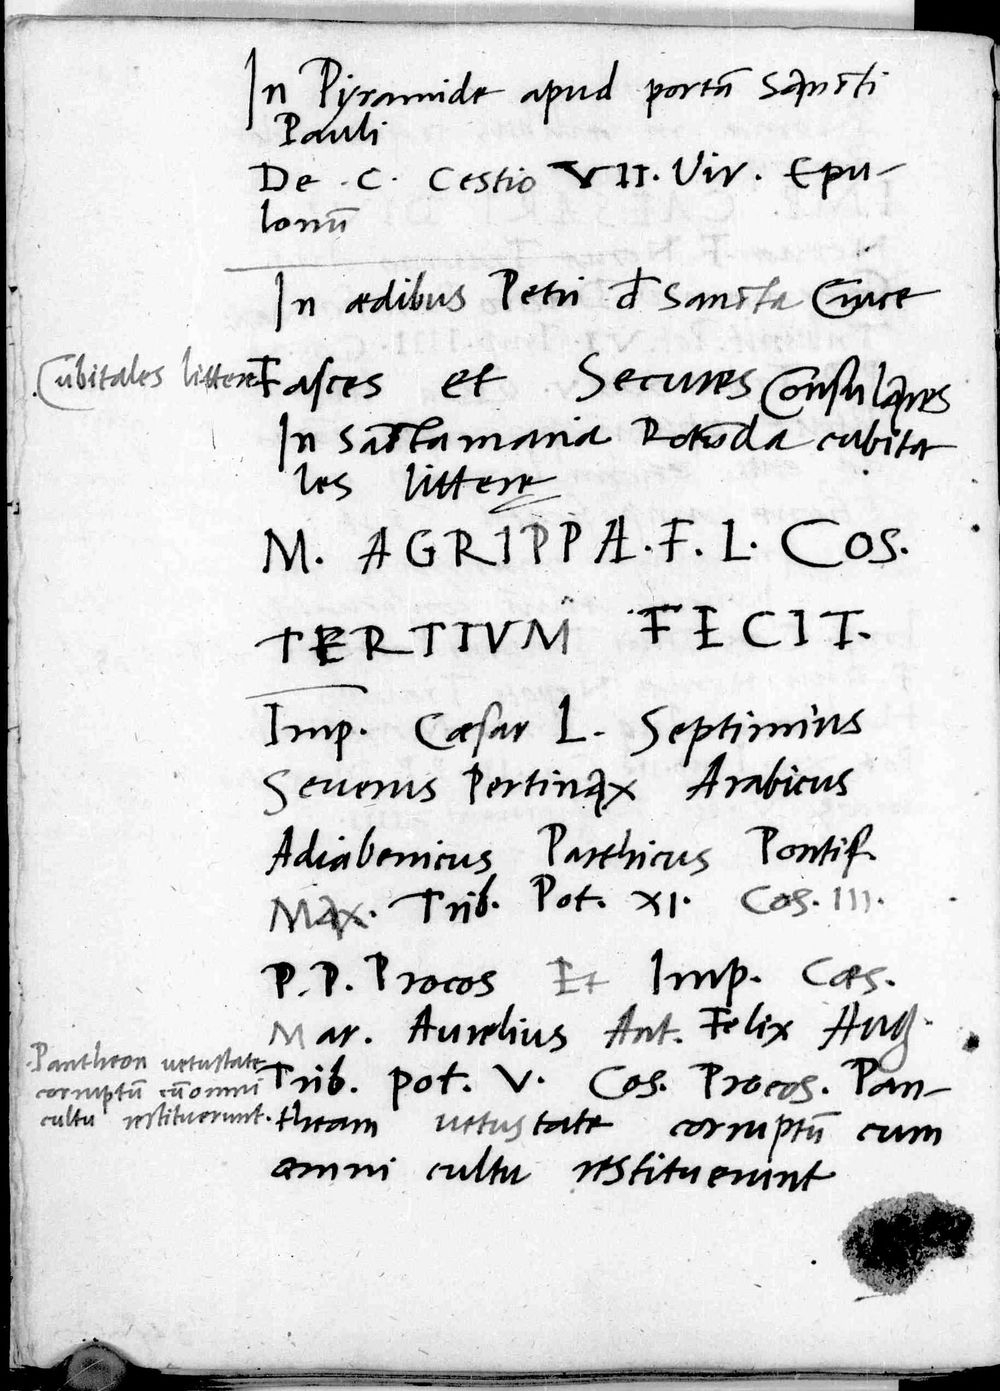 In Pyramide apud portā Sancti
Pauli
De . C. Cestio VII. Vir. Epu-
lonū
In ædibus Petri đ Sancta Cruce
Cubitales littere
Fasces et Secures Consulares
In Sācta maria Rotūda cubita
les littere
M. AGRIPPA. F. L. COS.
TERTIVM FECIT.
Imp. Cæsar L. Septimius
Seuerus Pertinax Arabicus
Adiabenicus Parthicus Pontif.
Max. Trib. Pot. XI. Cos. III.
P. P. Procos Et Imp. Cæs.
Mar. Aurelius Ant. Felix Aug.
Pantheon uetustate
corruptū cū omni
cultu restituerunt.
Trib. pot. V. Cos. Procos. Pan-
theam uetustate corruptū cum
omni cultu restituerunt